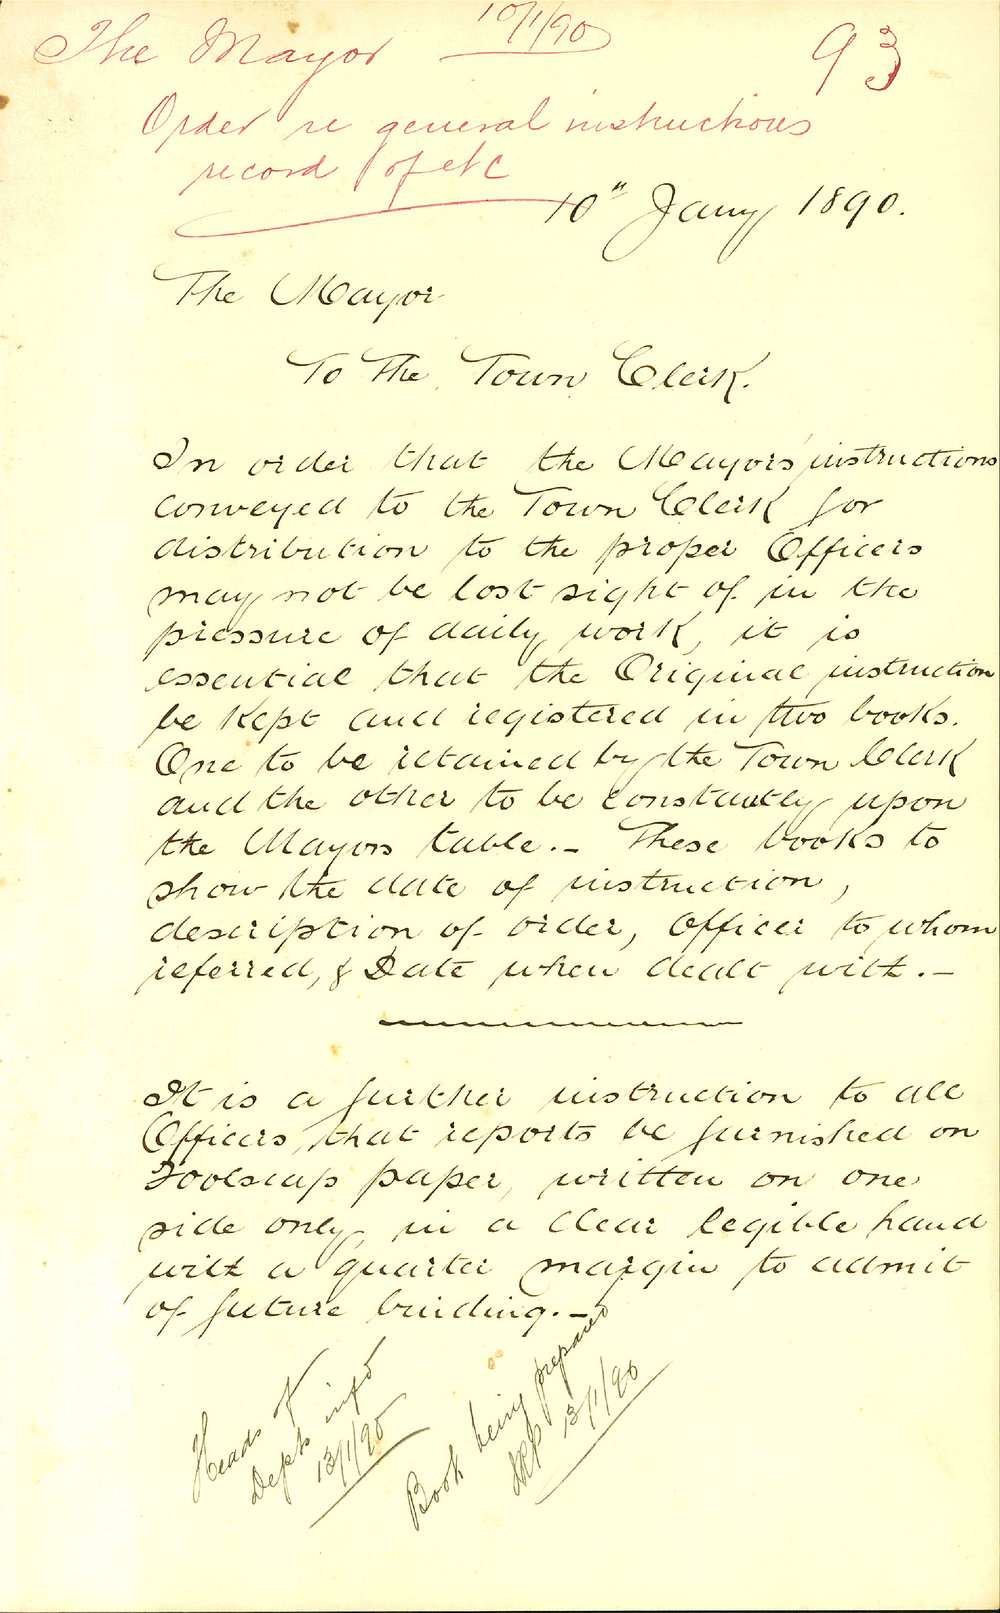 10/1/90
The Mayor
93
Order re general instructions
record of etc
10" Jany 1890.
The Mayor
To The Town Clerk.
In order that the Mayors' instructions
conveyed to the Town Clerk for
distribution to the proper Officers
may not be lost sight of in the
pressure of daily work, it is
essential that the Original instruction
be kept and registered in two books.
One to be retained by the Town Clerk
and the other to be constantly upon
the Mayors table.—These books to
show the date of instruction,
description of order, Officer to whom
referred, & Date when dealt with.—
It is a further instruction to all
Officers, that reports be furnished on
Foolscap paper, written on one
side only, in a clear legible hand
with a quarter margin to admit
of future binding.—
Heads of
Depts infd
13/1/90
Book being prepared
13/1/90